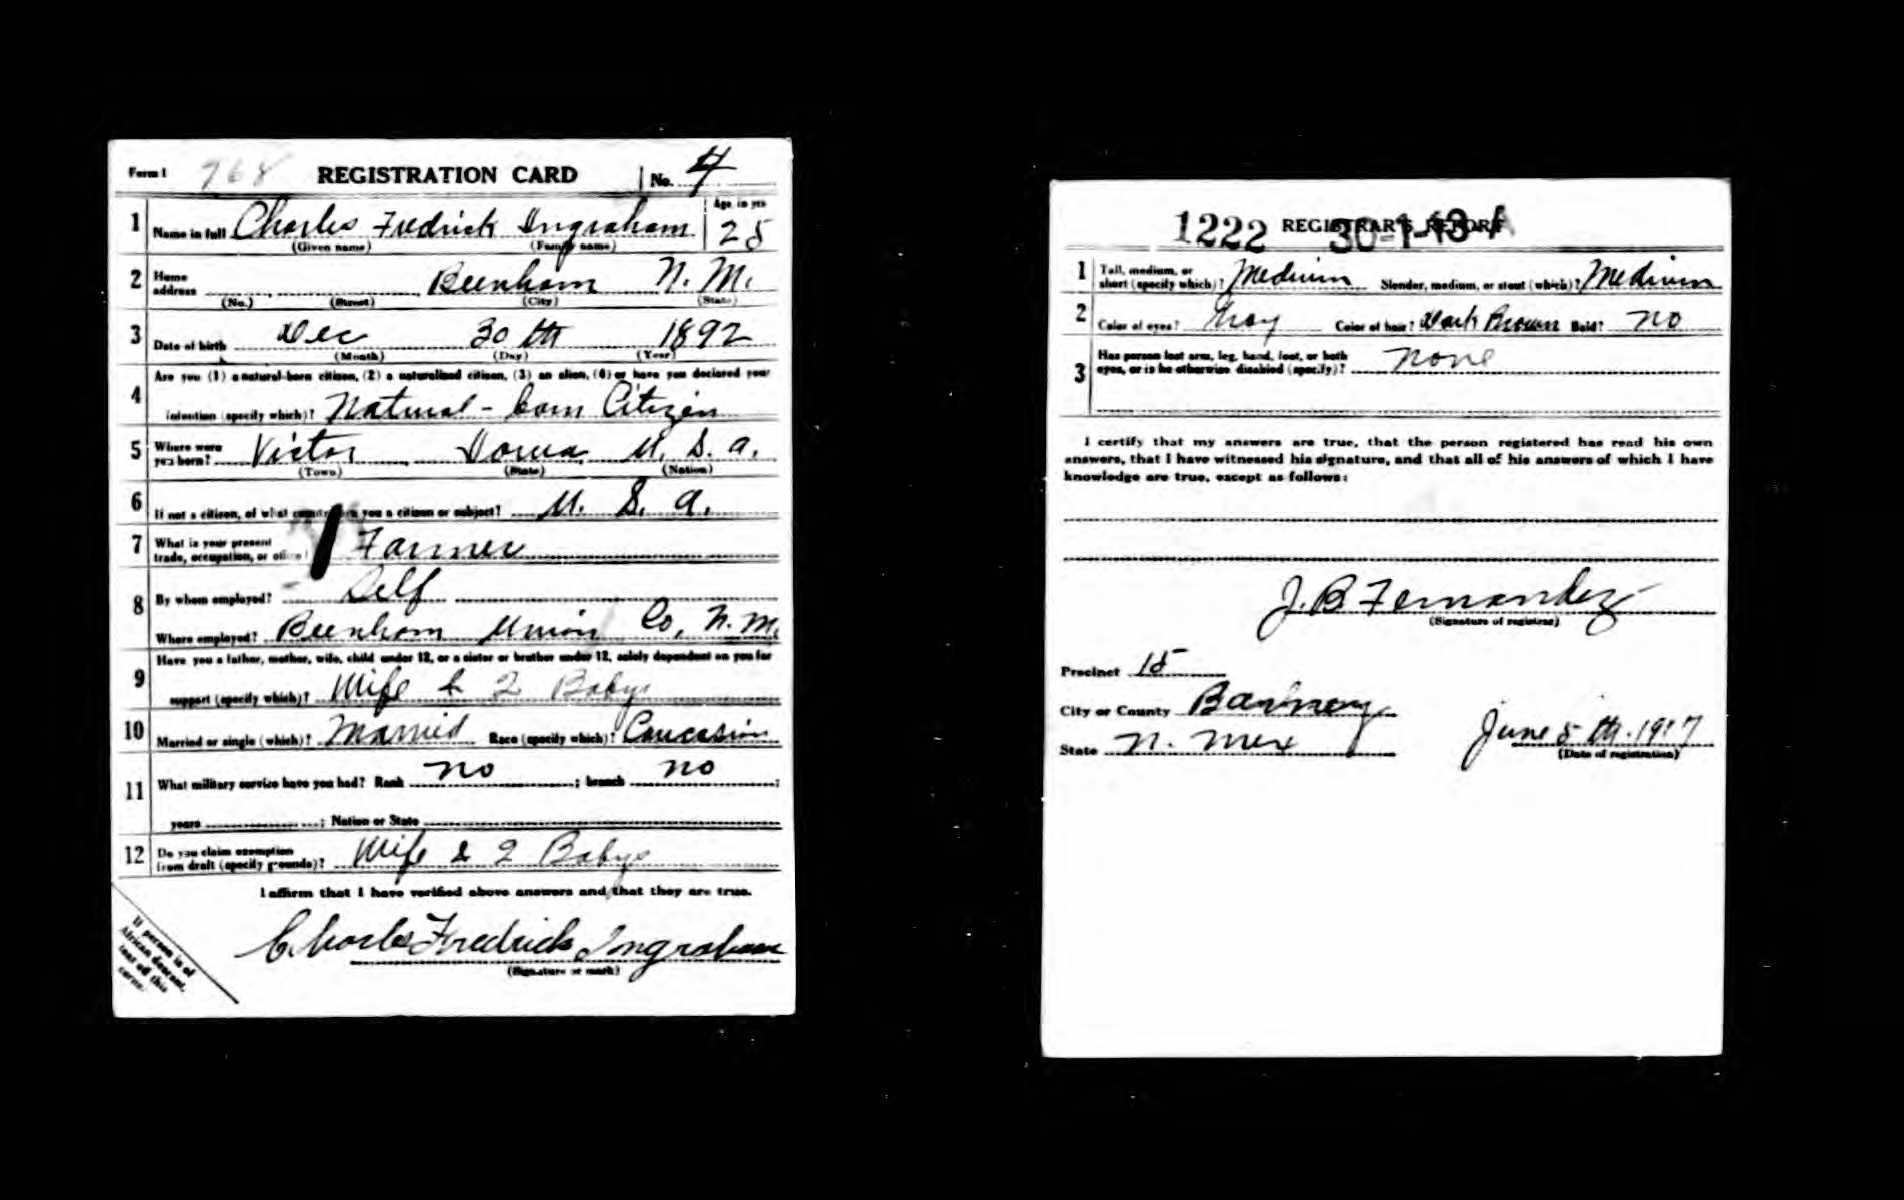 Form 1 768 REGISTRATION CARD No. 4
1 Name in full Charles Fredrick Ingraham Age, in yrs 25
(Given name) (Family name)
2 Home address Beenham N. M.
(No.) (Street) (City) (State)
3 Date of birth Dec 30th 1892
(Month) (Day) (Year)
4 Are you (1) a natural-born citizen, (2) a naturalized citizen, (3) an alien, (4) or have you declared your
intention (specify which)? Natural - born Citizen
5 Where were you born? Victor Iowa U. S. a.
(Town) (State) (Nation)
6 If not a citizen, of what country are you a citizen or subject? U. S. a.
7 What is your present trade, occupation, or office? Farmer
8 By whom employed? Self
Where employed? Beenham Union Co, N. M.
9 Have you a father, mother, wife, child under 12, or a sister or brother under 12, solely dependent on you for
support (specify which)? Wife & 2 Babys
10 Married or single (which)? Married Race (specify which)? Caucasion
11 What military service have you had? Rank no ; branch no ;
years ; Nation or State
12 Do you claim exemption from draft (specify grounds)? Wife & 2 Babys
I affirm that I have verified above answers and that they are true.
Charles Fredrick Ingraham
(Signature or mark)
If person is of
African descent,
tear off this
corner.
1222 REGISTRAR'S REPORT 30-1-13 A
1 Tall, medium, or short (specify which)? Medium Slender, medium, or stout (which)? Medium
2 Color of eyes? Gray Color of hair? Dark Brown Bald? No
3 Has person lost arm, leg, hand, foot, or both
eyes, or is he otherwise disabled (specify)? None
I certify that my answers are true, that the person registered has read his own
answers, that I have witnessed his signature, and that all of his answers of which I have
knowledge are true, except as follows:
J. B. Fernandez
(Signature of registrar)
Precinct 15
City or County
State N. Mex
June 5th. 1917
(Date of registration)